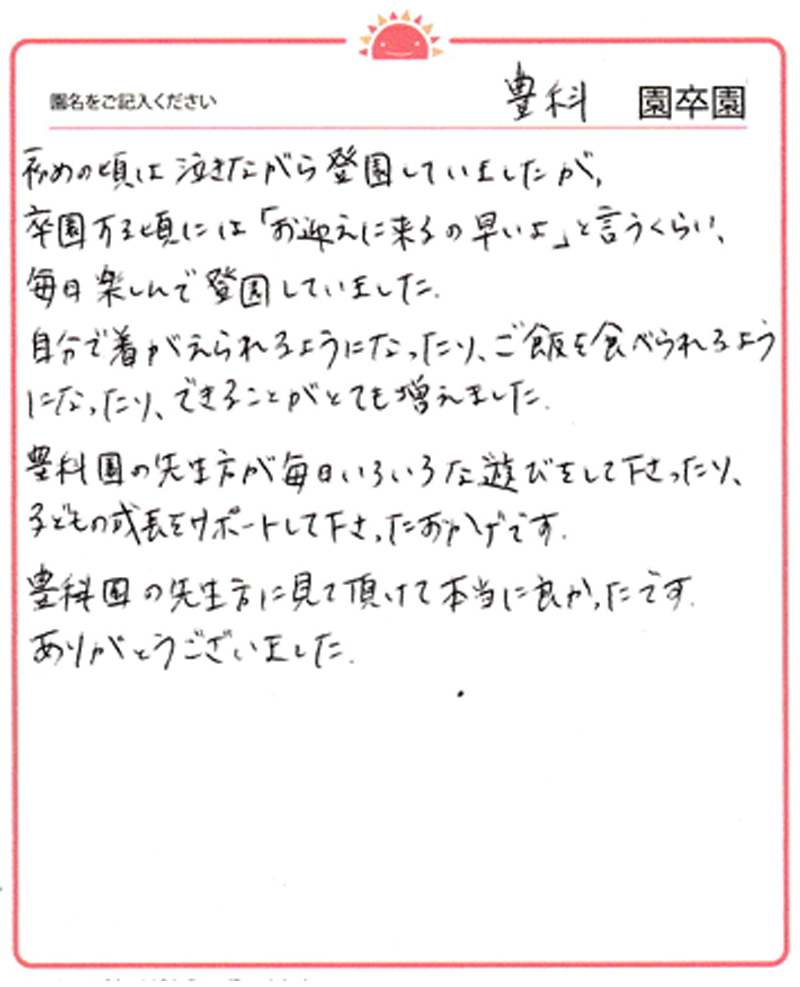 園名をご記入ください 豊科 園卒園
初めの頃は泣きながら登園していましたが、
卒園する頃には「お迎えに来るの早いよ」と言うくらい、
毎日楽しんで登園していました.
自分で着がえられるようになったり、ご飯を食べられるよう
になったり、できることがとても増えました.
豊科園の先生方が毎日いろいろな遊びをして下さったり、
子どもの成長をサポートして下さったおかげです.
豊科園の先生方に見て頂けて本当に良かったです.
ありがとうございました.